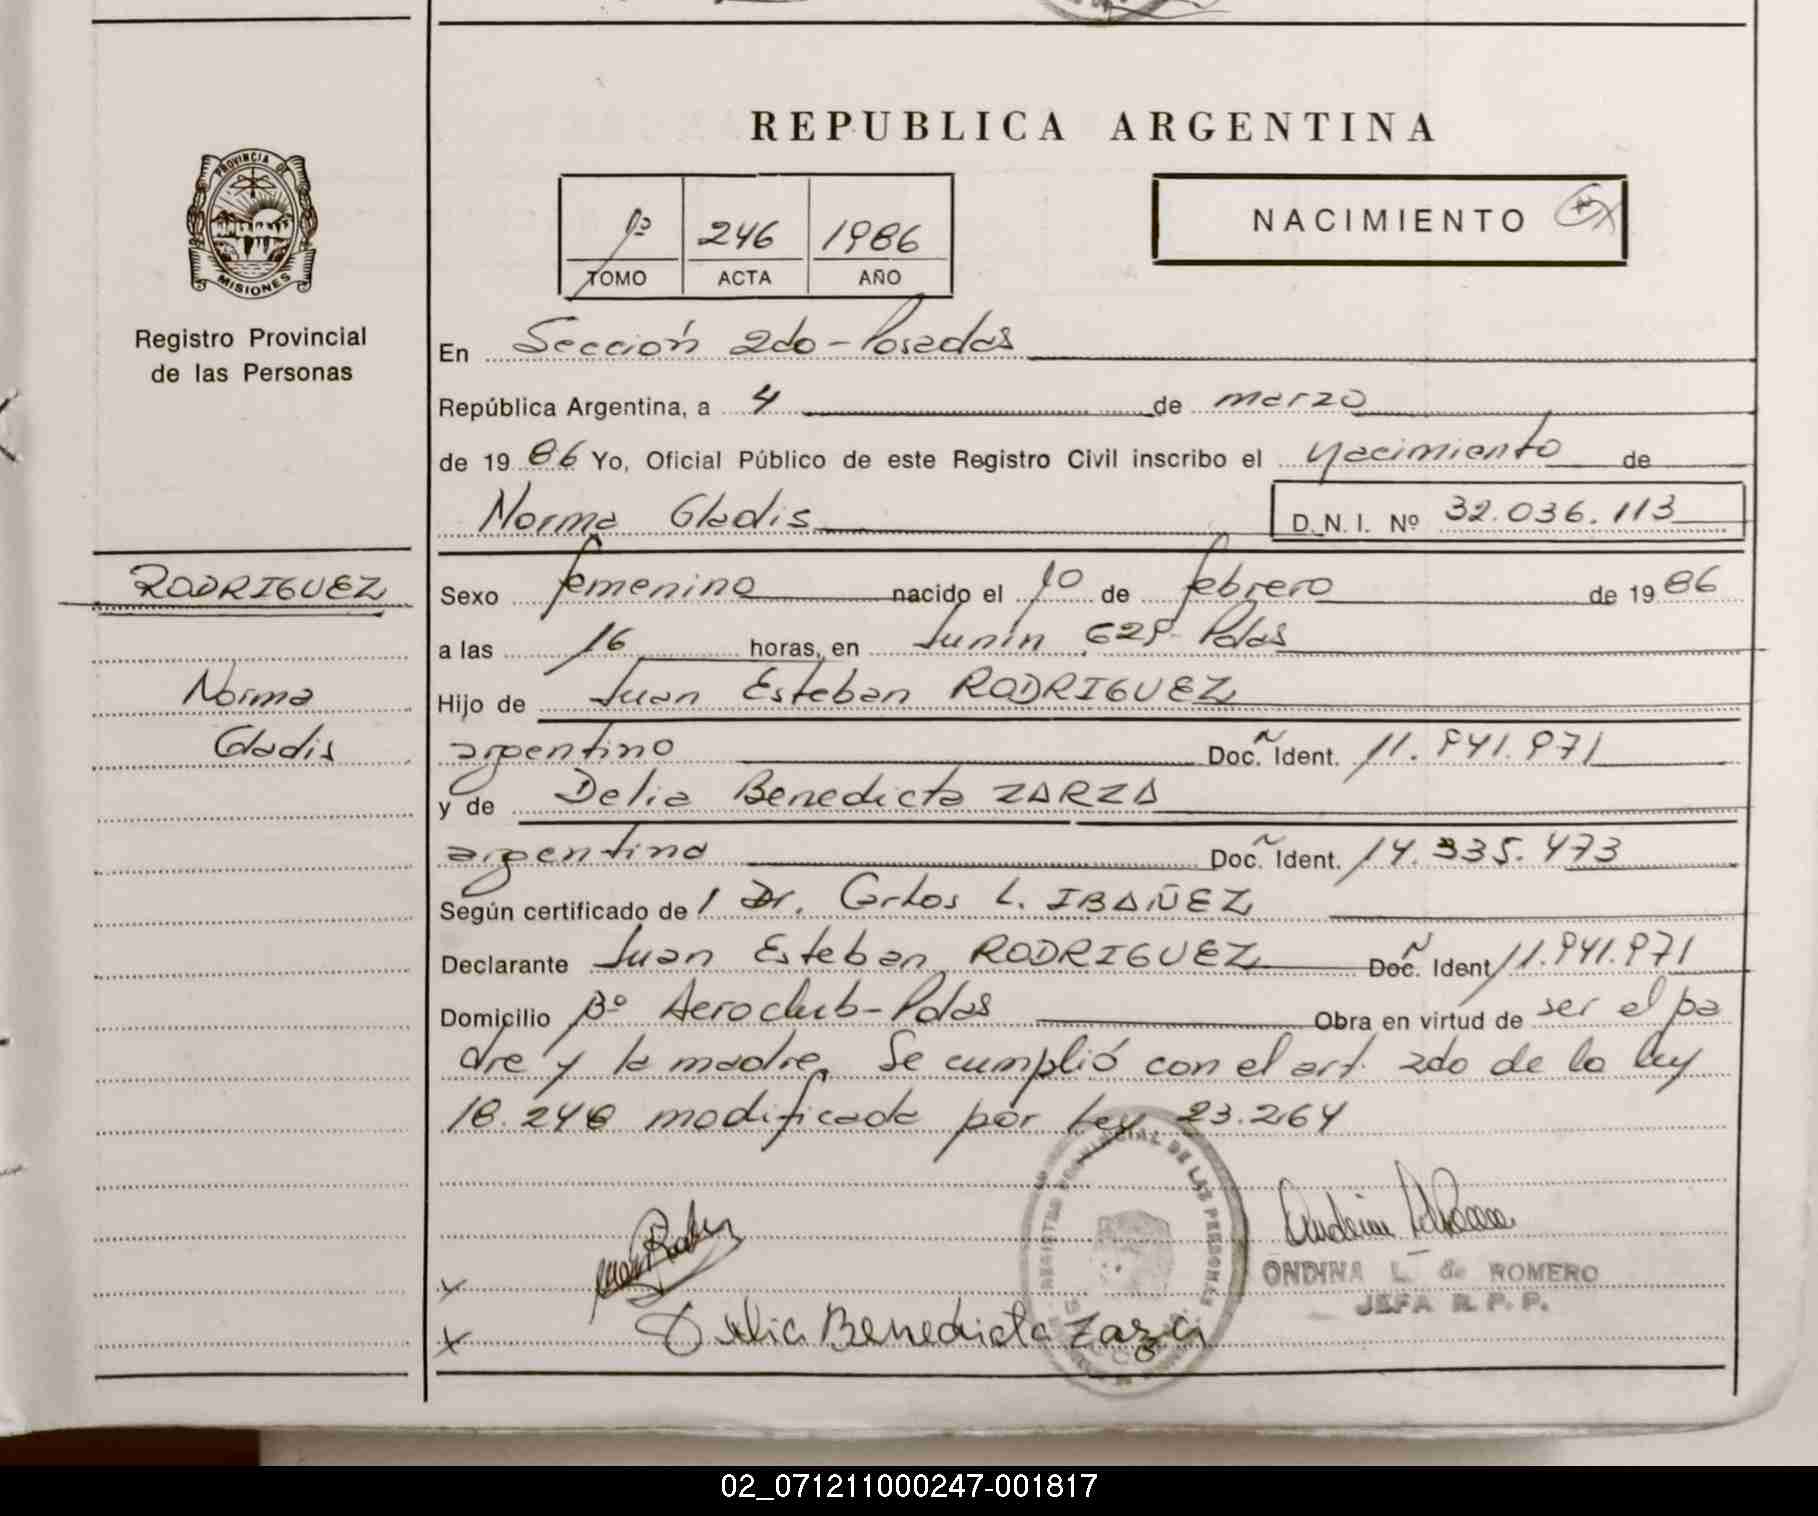 REPUBLICA ARGENTINA
PROVINCIA DE
MISIONES
Registro Provincial
de las Personas
1º 246 1986
TOMO ACTA AÑO
NACIMIENTO
En Sección 2da - Posadas
República Argentina, a 4 de marzo
de 1986 Yo, Oficial Público de este Registro Civil inscribo el Nacimiento de
Norma Gladis D.N.I. Nº 32.036.113
RODRIGUEZ
Norma
Gladis
Sexo femenino nacido el 10 de febrero de 1986
a las 16 horas, en Junín 629- Pdas
Hijo de Juan Esteban RODRIGUEZ
argentino Doc. Ident. 11.941.971
y de Delia Benedicta ZARZA
argentina Doc. Ident. 14.335.473
Según certificado de l Dr. Carlos L. IBAÑEZ
Declarante Juan Esteban RODRIGUEZ Doc. Ident 11.941.971
Domicilio Bº Aeroclub - Pdas Obra en virtud de ser el pa
dre y la madre. Se cumplió con el art. 2do de la ley
18.248 modificada por Ley 23.264
DE LAS PERSONAS
ONDINA L. de ROMERO
JEFA R.P.P.
Delia Benedicta Zarza
02_071211000247-001817